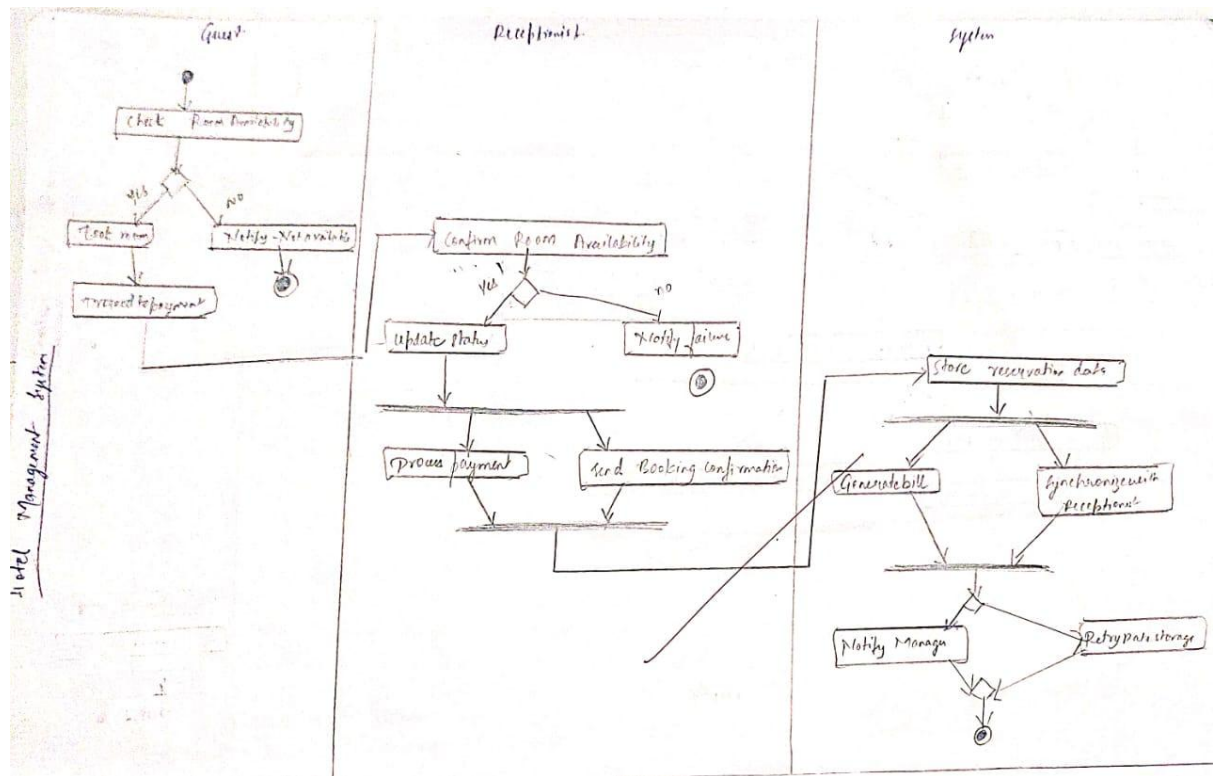 Guest
Receptionist
System
Check Room Availability
Yes
NO
room
Notify-Notavailable
Proceed to payment
Hotel Management System
Confirm Room Availability
Yes
no
Update Status
Notify failure
process payment
Send Booking Confirmation
Store reservation data
Generate bill
Synchronize with
Receptionist
Notify Manager
Retry Data storage